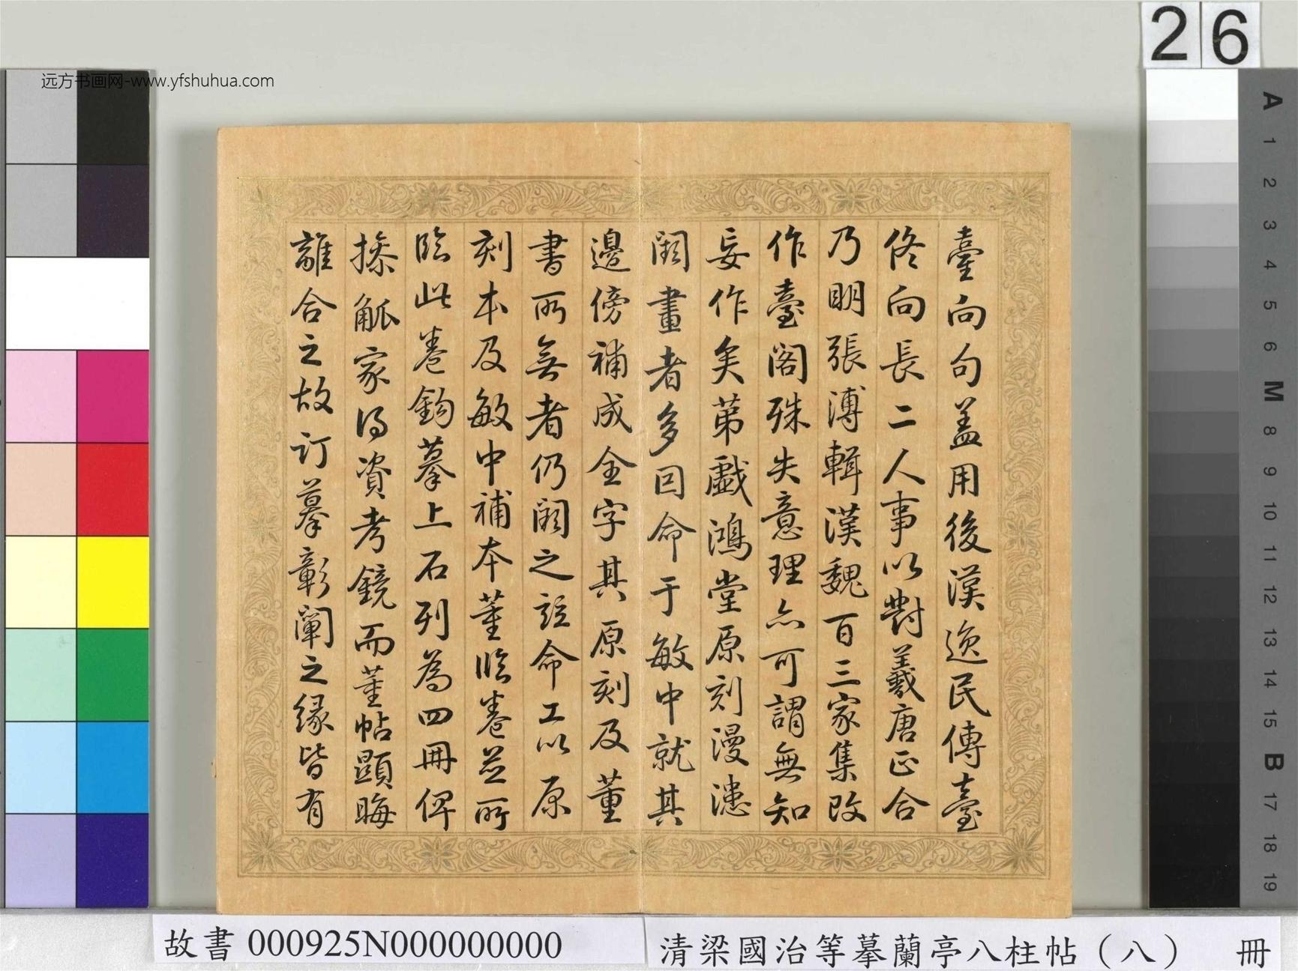 远方书画网-www.yfshuhua.com
26
臺向句盖用後漢逸民傳臺
佟向長二人事以對羲唐正合
乃明張溥輯漢魏百三家集改
作臺閣殊失意理亦可謂無知
妄作矣苐戲鴻堂原刻漫漶
闕畫者多因命于敏中就其
邊傍補成全字其原刻及董
書所無者仍闕之并命工以原
刻本及敏中補本董臨卷並所
臨此卷鉤摹上石列為四冊俾
操觚家得資考鏡而董帖顯晦
離合之故訂摹彰闡之緣皆有
A
1
2
3
4
5
6
M
8
9
10
11
12
13
14
15
B
17
18
19
故書 000925N000000000
清梁國治等摹蘭亭八柱帖（八） 冊